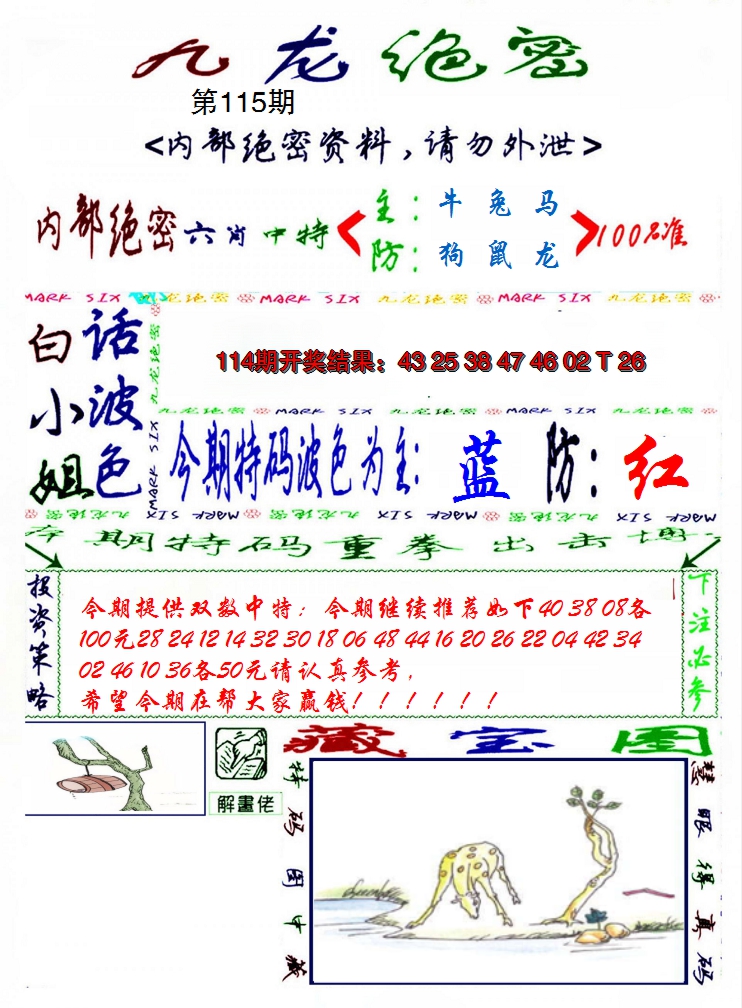 九龙绝密
第115期
<内部绝密资料,请勿外泄>
内部绝密六肖中特
主:牛兔马
防:狗鼠龙
100%准
MARK SIX 九龙绝密 MARK SIX 九龙绝密 MARK SIX 九龙绝密
白小姐
话波色
九龙绝密 MARK SIX
114期开奖结果:43 25 38 47 46 02 T 26
九龙绝密 MARK SIX 九龙绝密 MARK SIX 九龙绝密
今期特码波色为主:蓝 防:红
MARK SIX 九龙绝密 MARK SIX 九龙绝密 MARK SIX
本期特码重拳出击博
投资策略
今期提供双数中特:今期继续推荐如下40 38 08各
100元28 24 12 14 32 30 18 06 48 44 16 20 26 22 04 42 34
02 46 10 36各50元请认真参考,
希望今期在帮大家赢钱!!!!!!
下注必参
解畫佬
藏宝图
特码图中藏
慧眼得真码